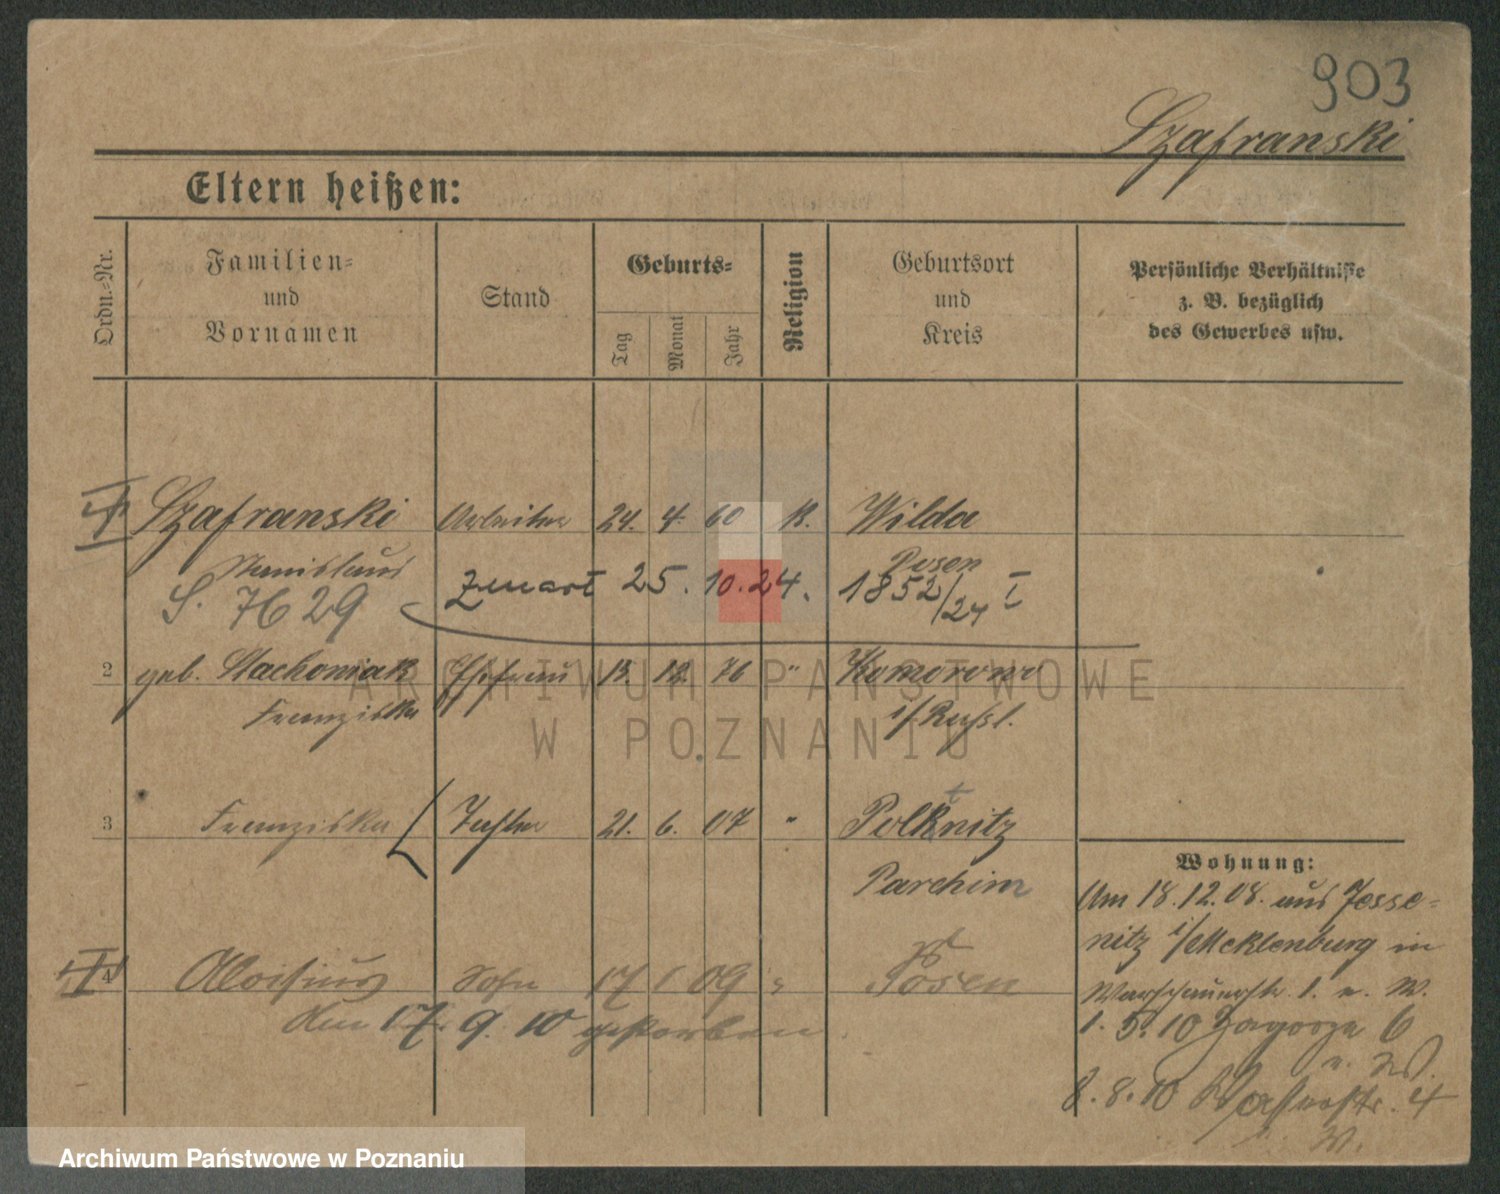 903
Szafranski
Eltern heißen:
Ordn.-Nr.
Familien-
und
Vornamen
Stand
Geburts-
Tag
Monat
Jahr
Religion
Geburtsort
und
Kreis
Persönliche Verhältnisse
z. B. bezüglich
des Gewerbes usw.
Szafranski Arbeiter 24. 4. 60 K. Wilda
Stanislaus Posen
S. 7629 25. 10. 24. 1852/24 I
2 geb. Stachowiak Ehefrau 13. 12. 76 " Komorowo
Franziska i/Russl.
3 Franziska Tochter 21. 6. 07 " Polknitz
Parchim
Wohnung:
Am 18.12.08. aus Jesse-
nitz i/Mecklenburg in
4 Aloisius Sohn 17 09 " Posen
Warschauerstr. 1.
Am 17. 9. 10 gestorben.
1. 5. 10 Zagorze 6
8. 8. 10 4
W.
ARCHIWUM PAŃSTWOWE
W POZNANIU
Archiwum Państwowe w Poznaniu